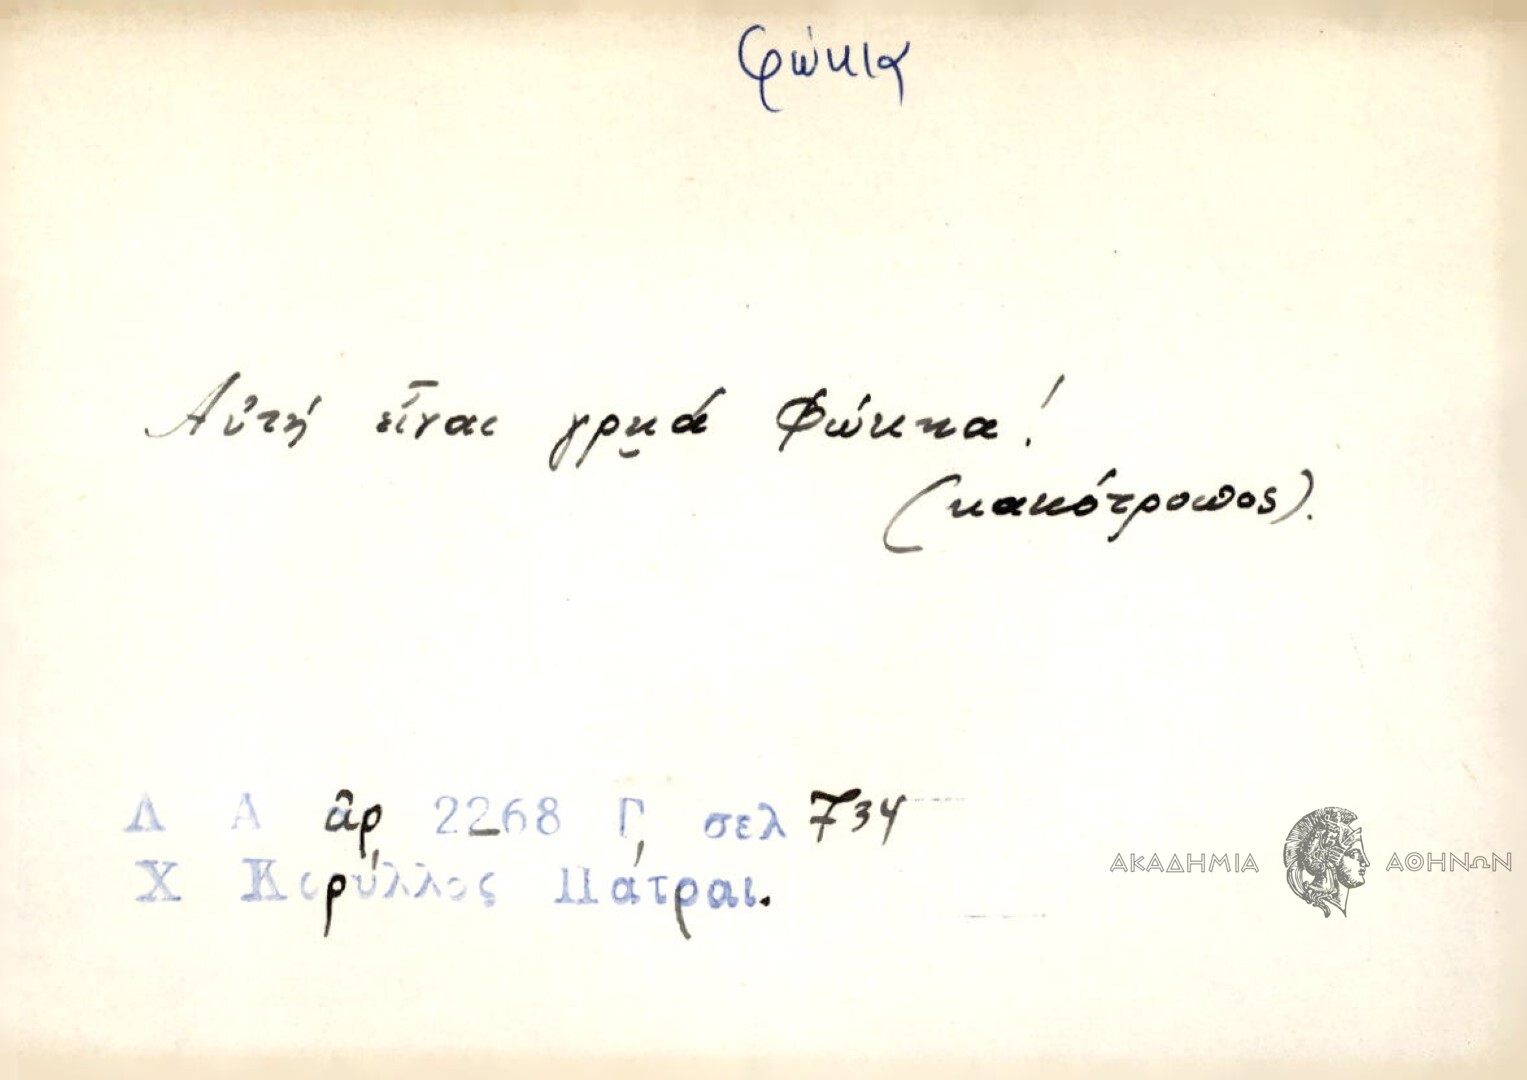 φώκια
Αὐτὴ εἶναι γρῃά Φώκια!
(κακότροπος).
Λ Α ἀρ 2268 Γ, σελ 734
Χ Κορύλλος Πάτραι.
ΑΚΑΔΗΜΙΑ ΑΘΗΝΩΝ